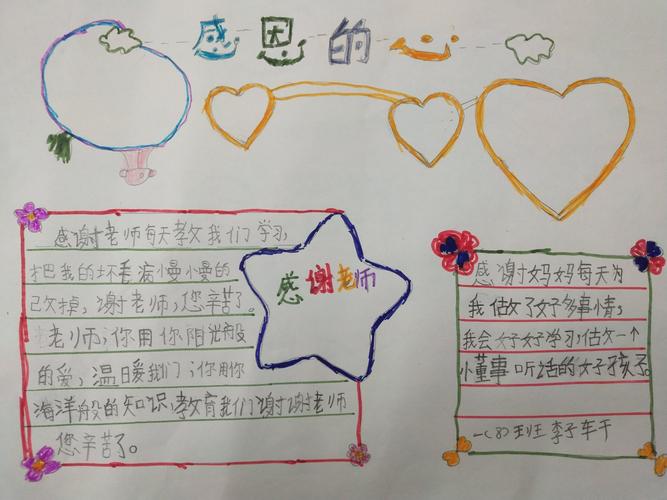 感恩的心
感谢老师每天教我们学习,
把我的坏毛病小曼小曼的
己攵掉,谢老师,您辛苦了。
老师;你用你阳光般
的爱,温暖我们;你用你
海洋般的知识,教育我们谢谢老师
您辛苦了。
感谢老师
感谢妈妈每天为
我估攵了好多事情,
我会好好学习,估攵一个
小董事听话的女子孩子。
一(8)班 李子车干